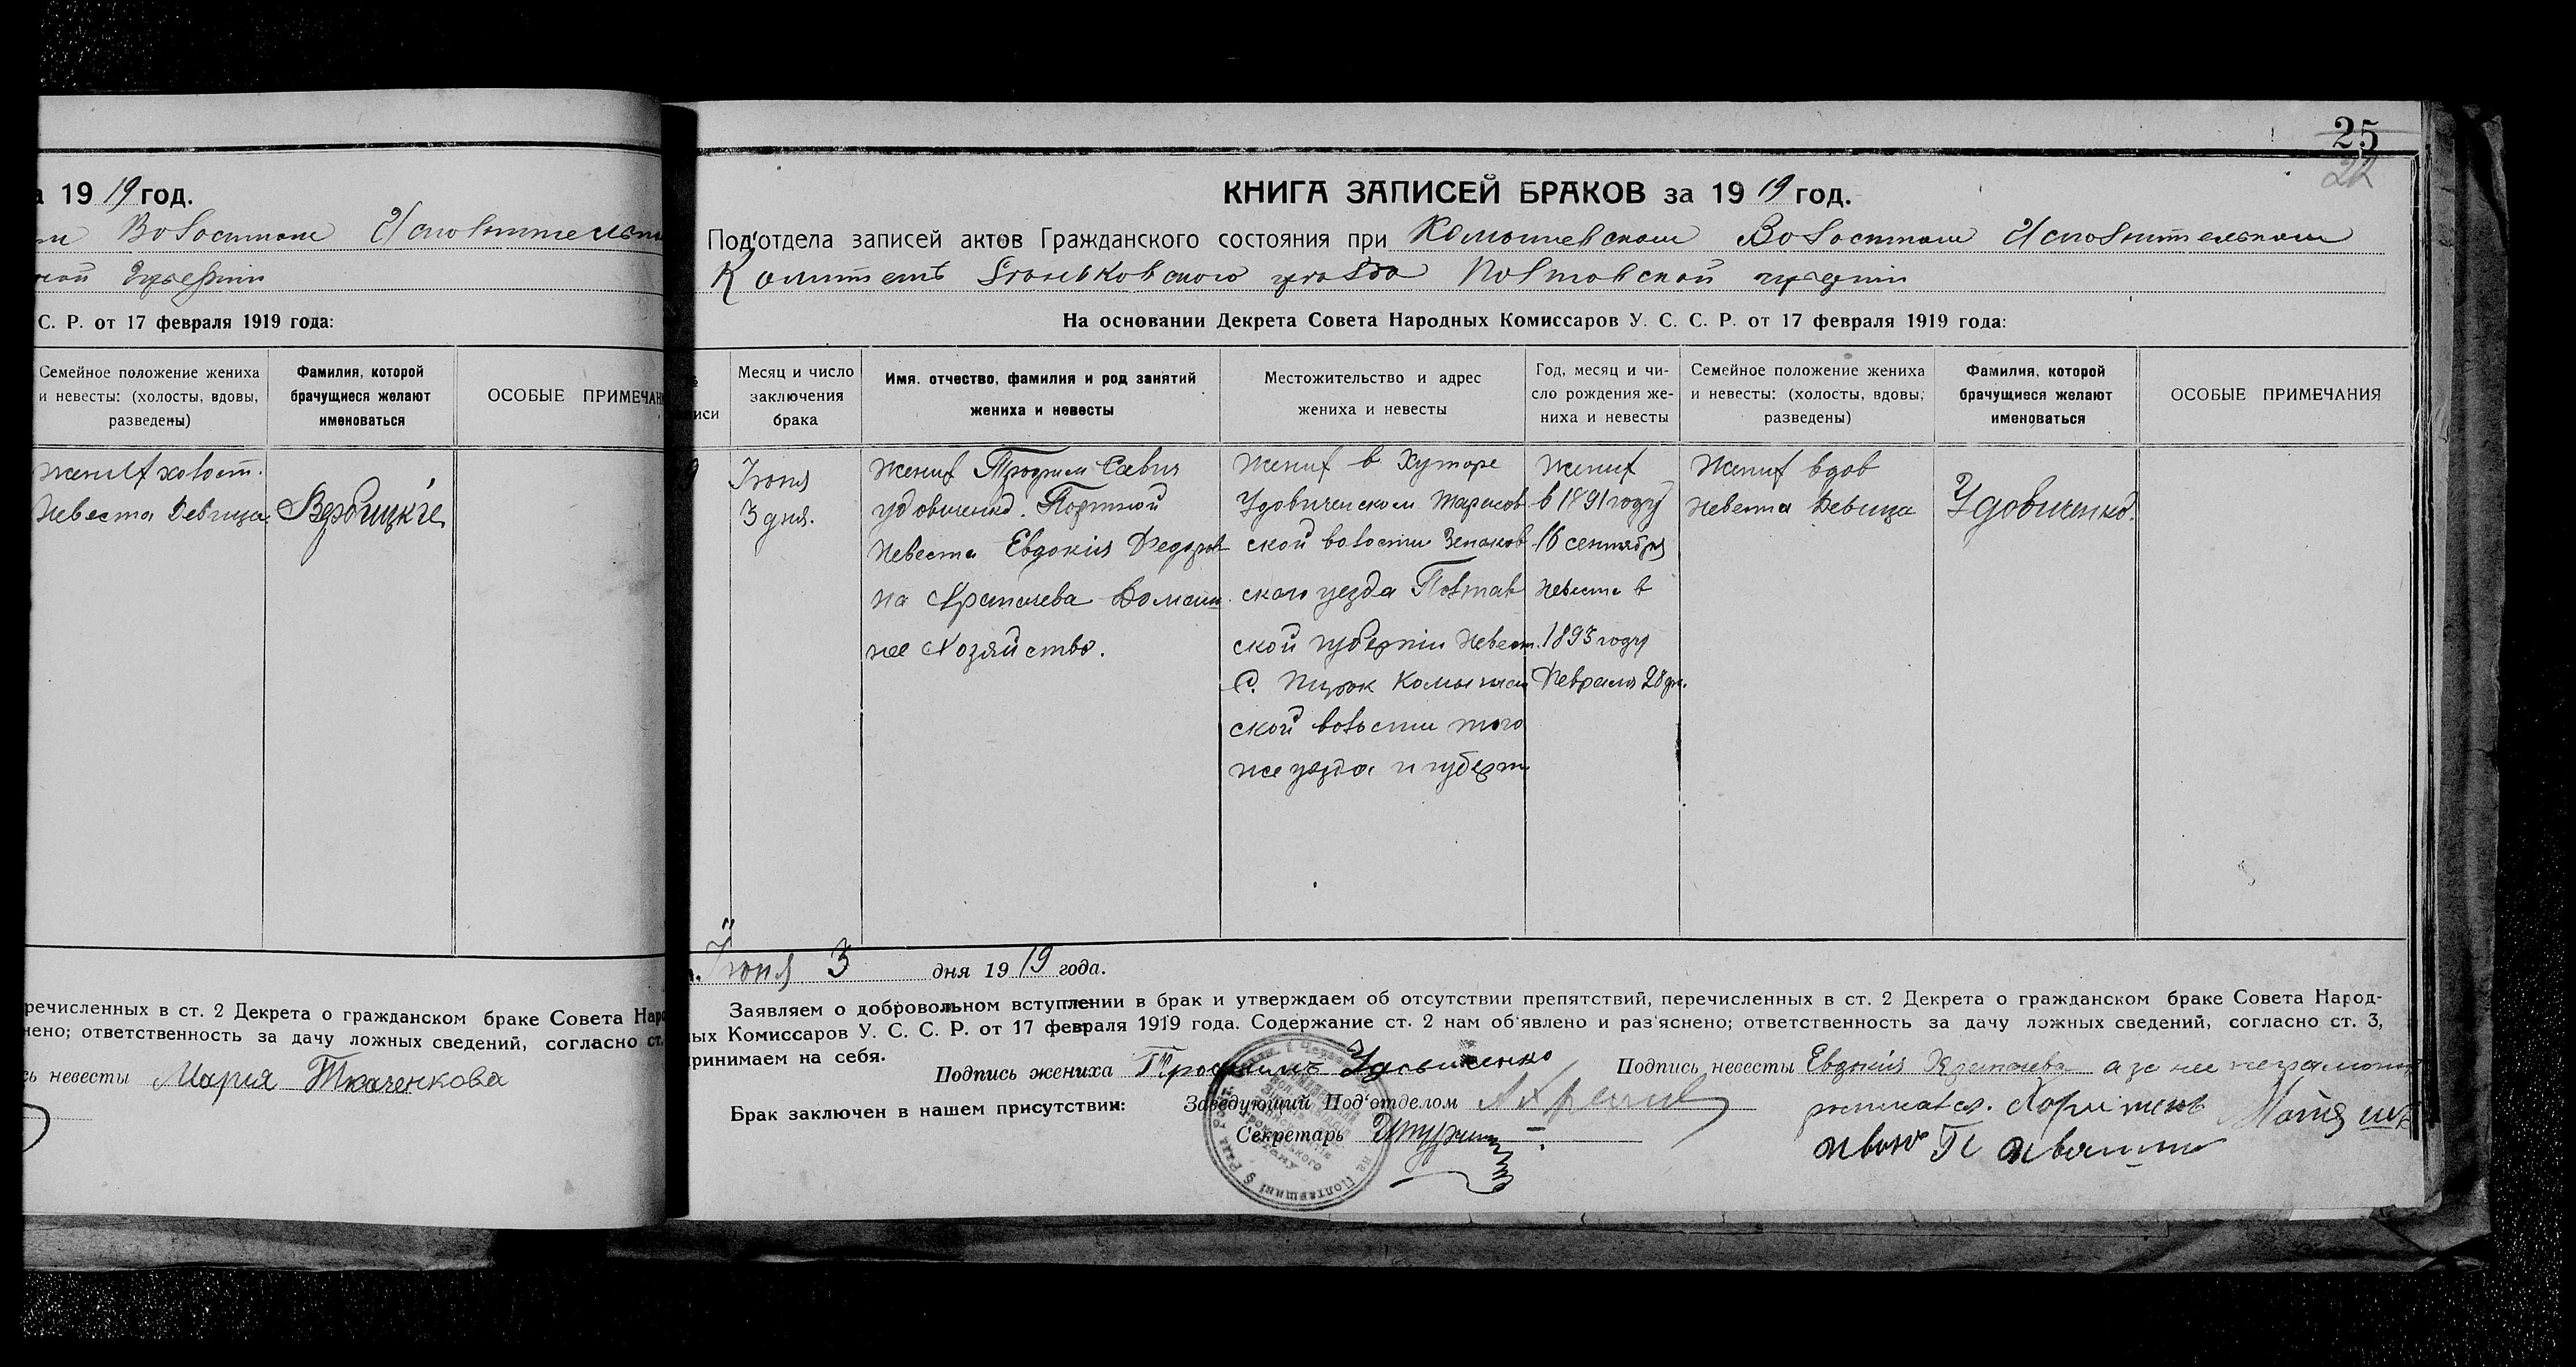 19 19 год.
Волостном Исполнительн
С. Р. от 17 февраля 1919 года:
Семейное положение жениха и невесты: (холосты, вдовы, разведены)
Фамилия, которой брачущиеся желают именоваться
ОСОБЫЕ ПРИМЕЧАН
Жених холост.
Невеста Девица
Вербицкіе
речисленных в ст. 2 Декрета о гражданском браке Совета Наро
нено; ответственность за дачу ложных сведений, согласно ст.
сь невесты Мария Ткаченкова
25
22
КНИГА ЗАПИСЕЙ БРАКОВ за 19 19 год.
Под'отдела записей актов Гражданского состояния при Комышевском Волостном Исполнительном
Комитетѣ Зѣньковского уезда Полтавской губернии
На основании Декрета Совета Народных Комиссаров У. С. С. Р. от 17 февраля 1919 года:
иси
Месяц и число заключения брака
Имя, отчество, фамилия и род занятий жениха и невесты
Местожительство и адрес жениха и невесты
Год, месяц и число рождения жениха и невесты
Семейное положение жениха и невесты: (холосты, вдовы, разведены)
Фамилия, которой брачущиеся желают именоваться
ОСОБЫЕ ПРИМЕЧАНИЯ
9
Іюня
3 дня.
Жених Трофим Савич
Удовиченко. Портной
Невеста Евдокия Федоров
на Домаш
нее Хозяйство.
Жених в Хуторе
Удовиченском Тарасов
ской волости Зеньков
ского уезда Полтав
ской губернии Невест.
С. Комышев
ской волости того
же уезда и губерн
Жених
в 1891 году
16 сентября
Невеста в
1893 году
Февраля 28 дн.
Жених вдов
Невеста Девица
Удовиченко.
Іюня 3 дня 19 19 года.
Заявляем о добровольном вступлении в брак и утверждаем об отсутствии препятствий, перечисленных в ст. 2 Декрета о гражданском браке Совета Народ-
ных Комиссаров У. С. С. Р. от 17 февраля 1919 года. Содержание ст. 2 нам об'явлено и раз'яснено; ответственность за дачу ложных сведений, согласно ст. 3,
принимаем на себя.
Подпись жениха Трофимъ Удовиченко
Подпись невесты Евдокия а за нее неграмотн
росписался.
Брак заключен в нашем присутствии:
Заведующий Под'отделом
Секретарь